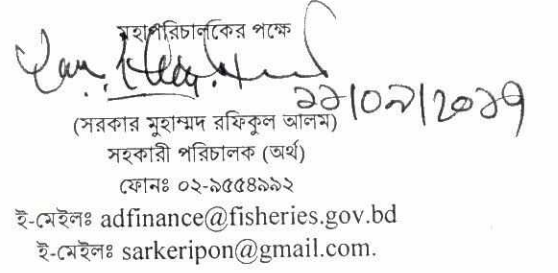 মহাপরিচালকের পক্ষে
১১/০৯/২০১৭
(সরকার মুহাম্মদ রফিকুল আলম)
সহকারী পরিচালক (অর্থ)
ফোনঃ ০২-৯৫৫৪৯৯২
ই-মেইলঃ adfinance@fisheries.gov.bd
ই-মেইলঃ sarkeripon@gmail.com.